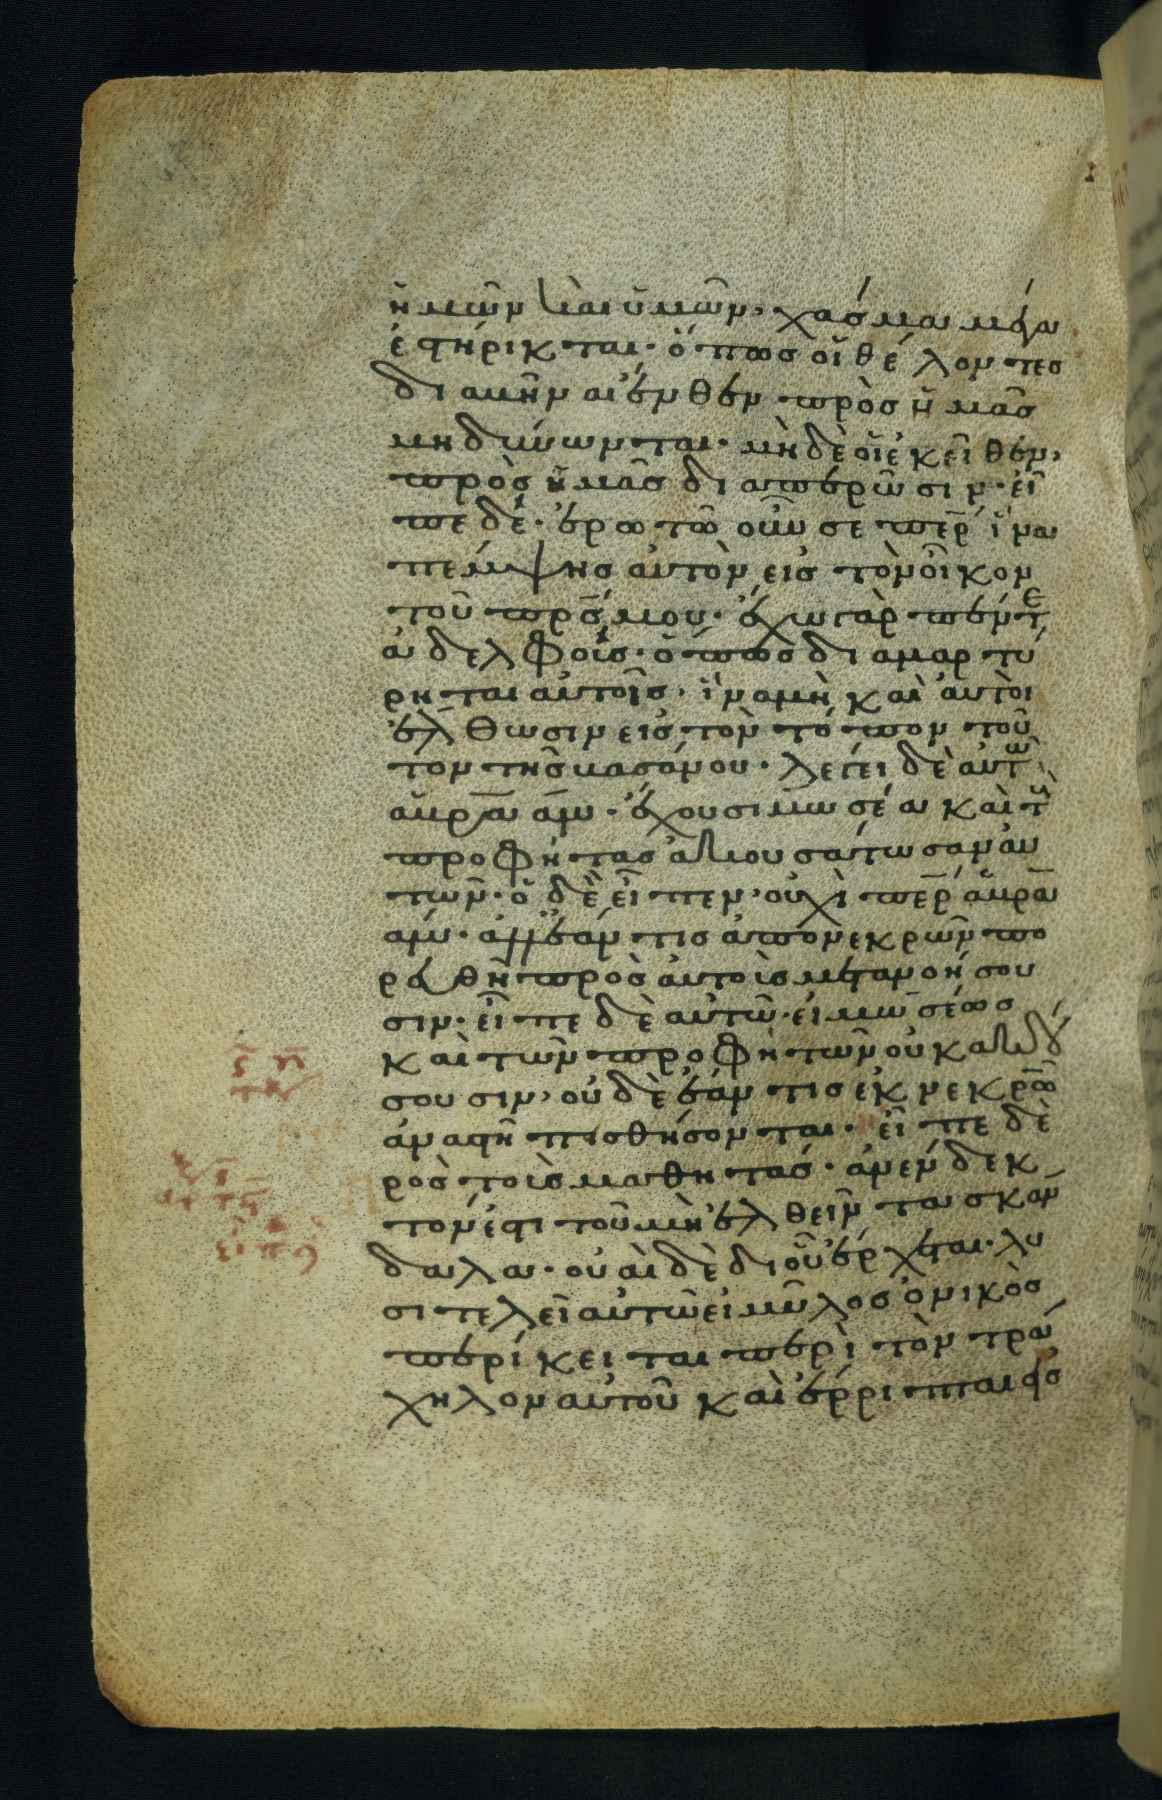 ἡμῶν καὶ ὑμῶν· χάσμα μέγα
ἐστήρικται· ὅπως οἱ θέλοντες
διαβῆναι ἔνθεν πρὸς ἡμᾶς
μὴ δύνωνται· μὴ δὲ οἱ ἐκεῖθεν,
πρὸς ἡμᾶς διαπερῶσιν· εἶ
πε δέ· ἐρωτῶ οὖν σε περ ἵνα
πέμψης αὐτὸν εἰς τὸν οἶκον
τοῦ πρς μου· ἔχω γὰρ πέντε
ἀδελφούς· ὅπως διαμαρτύ
ρηται αὐτοῖς, ἵνα μὴ καὶ αὐτοὶ
ἔλθωσιν εἰς τὸν τόπον τοῦ
τον τῆς βασάνου· λέγει δὲ αὐτῶ
ἀβραάμ· ἔχουσι μωσέα καὶ τοὺς
προφήτας ἀκουσάτωσαν αὐ
τῶν· ὁ δὲ εἶπεν, οὐχὶ περ ἀβρα
άμ· ἀλλ' ἐάν τις ἀπὸ νεκρῶν πο
ρευθῆ πρὸς αὐτοὺς μετανοήσου
σιν· εἶπε δὲ αὐτῶ· εἰ μωσέως
καὶ τῶν προφητῶν οὐκ ἀκού
σουσιν, οὐδὲ ἐάν τις ἐκ νεκρῶ
ἀναστῆ πισθήσονται· εἶπε δὲ
ρὸς τοὺς μαθητάς· ἀνένδεκ
τόν ἐστι τοῦ μὴ ἐλθεῖν τα σκάν
δαλα· οὐαὶ δὲ δι οὗ ἔρχεται· λυ
σιτελεῖ αὐτῶ εἰ μῦλος ὀνικὸς
περίκειται περὶ τὸν τρά
χηλον αὐτοῦ καὶ ἔρριπται εἰς